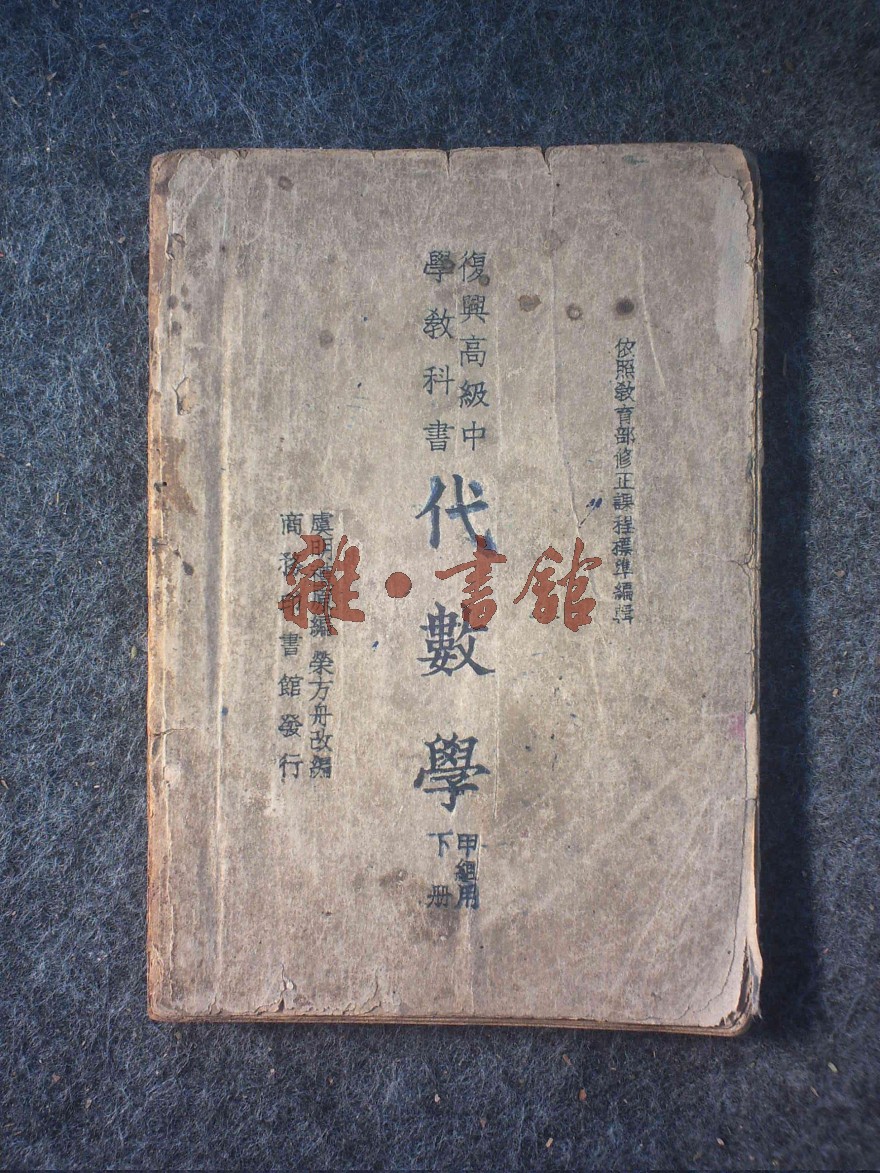 依照教育部修正課程標準編輯
復興高級中
學教科書
代數學
甲組用
下冊
虞明禮原編 榮方舟改編
商務印書館發行
雜·書館